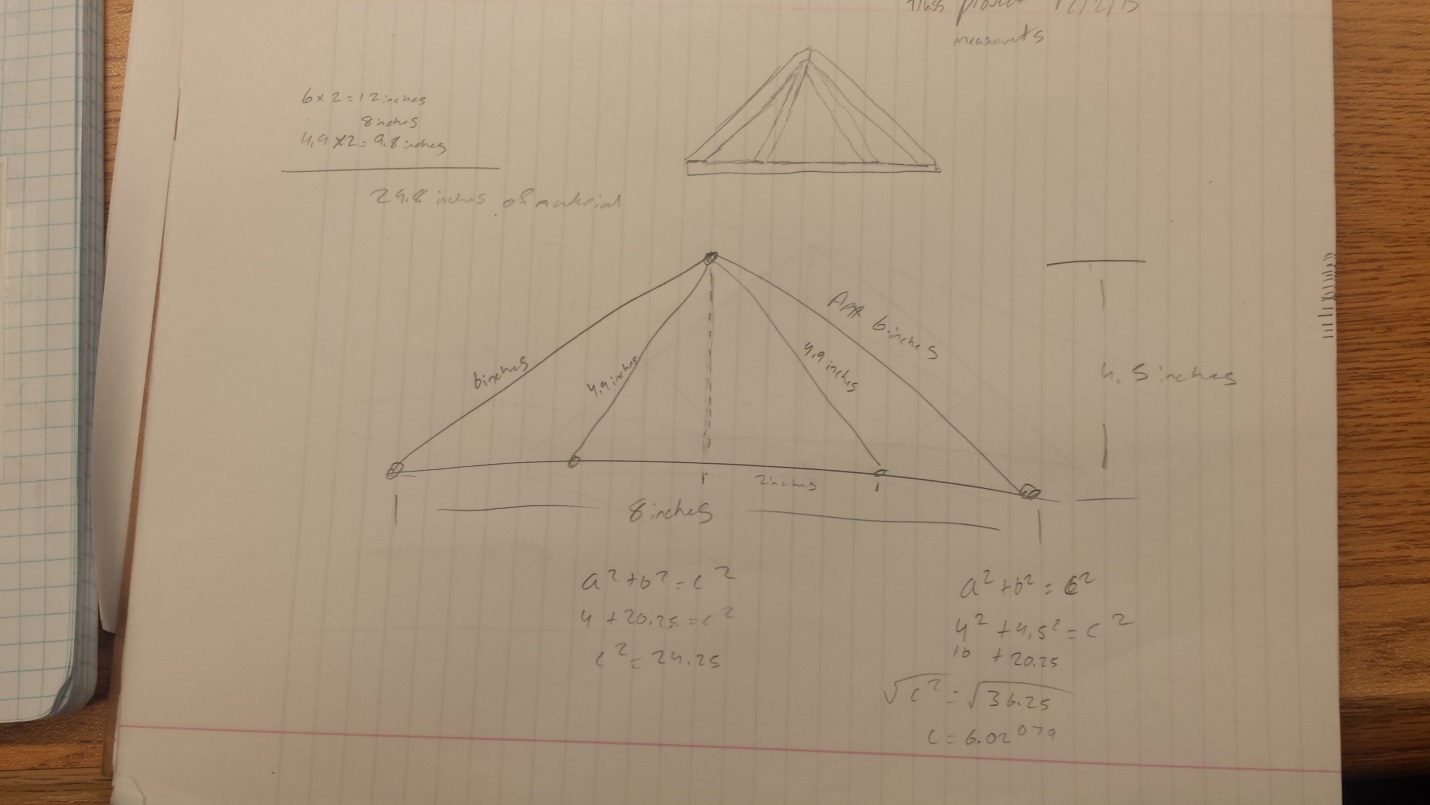 Truss project
measurments
6 x 2 = 12 inches
8 inches
4.9 x 2 = 9.8 inches
29.8 inches of material
6 inches
4.9 inches
4.9 inches
App 6 inches
4.5 inches
2 inches
8 inches
a² + b² = c²
4 + 20.25 = c²
c² = 24.25
a² + b² = c²
4² + 4.5² = c²
16 + 20.25
√c² = √36.25
c = 6.02079